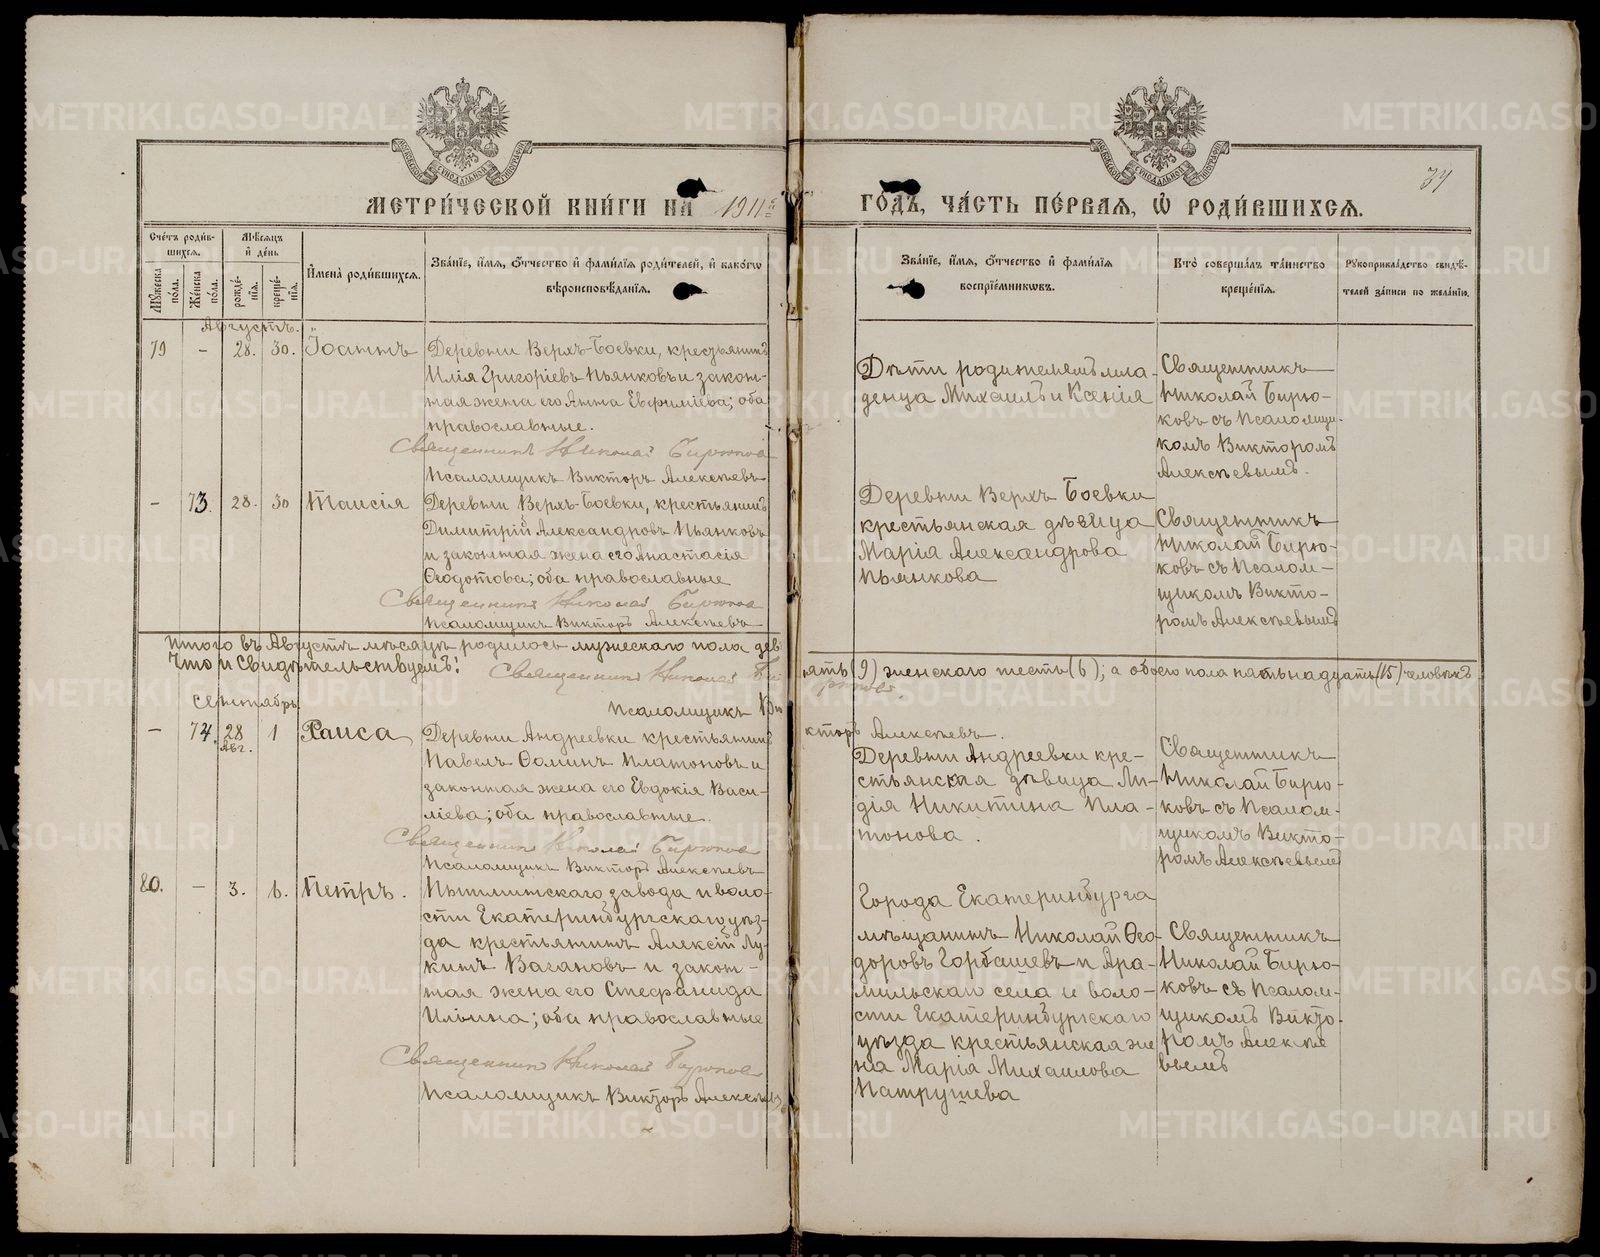 МЕТРИ́ЧЕСКОЙ КНИ́ГИ НА 1911 ГО́ДЪ, ЧА́СТЬ ПЕ́РВАЯ, Ѡ҆ РОДИ́ВШИХСѦ.
34
Сче́тъ роди́в-
шихся.
Мѣ́сяцъ
и҆ де́нь
Му́жеска
по́ла.
Же́нска
по́ла.
рожде́-
нїя.
креще́-
нїя.
И҆мена̀ роди́вшихся.
Зва́нїе, и҆́мя, ѻ҆́тчество и҆ фами́лїя роди́телей, и҆ како́гѡ
вѣроисповѣ́данїя.
Зва́нїе, и҆́мя, ѻ҆́тчество и҆ фами́лїя
воспрїе́мникѡвъ.
Кто̀ соверша́лъ та́инство
креще́нїя.
Рꙋкоприкла́дство свидѣ́-
телей за́писи по жела́нїю.
Августъ.
79 - 28. 30. Іоаннъ
Деревни Верхъ-Боевки, крестьянинъ
Илія Григоріевъ Пьянковъ и закон-
ная жена его Анна Евфиміева; оба
православные.
Священникъ Николай Бирюковъ
Псаломщикъ Викторъ Алексѣевъ
Дѣти родителемъ мла-
денца Михаилъ и Ксенія
Священникъ
Николай Бирю-
ковъ съ Псаломщи-
комъ Викторомъ
Алексѣевымъ.
- 73. 28. 30 Таисія
Деревни Верхъ-Боевки, крестьянинъ
Димитрій Александровъ Пьянковъ
и законная жена его Анастасія
Ѳеодотова; оба православные
Священникъ Николай Бирюковъ
Псаломщикъ Викторъ Алексѣевъ
Деревни Верхъ Боевки
крестьянская дѣвица
Марія Александрова
Пьянкова
Священникъ
Николай Бирю-
ковъ съ Псалом-
щикомъ Викто-
ромъ Алексѣевымъ
Итого въ Августѣ мѣсяцѣ родилось мужескаго пола девять (9) женскаго шесть (6); а обоего пола пятьнадцать (15) человѣкъ
Что и Свидѣтельствуемъ! Священникъ Николай Бирюковъ.
Псаломщикъ Викторъ Алексѣевъ.
Сентябрь
- 74. 28 1 Раиса
Авг.
Деревни Андреевки крестьянинъ
Павелъ Ѳоминъ Платоновъ и
законная жена его Евдокія Васи-
ліева; оба православные.
Священникъ Николай Бирюковъ
Псаломщикъ Викторъ Алексѣевъ
Деревни Андреевки кре-
стьянская дѣвица Ли-
дія Никитина Пла-
тонова.
Священникъ
Николай Бирю-
ковъ съ Псалом-
щикомъ Викто-
ромъ Алексѣевымъ
80. - 3. 6. Петръ.
Нытлинскаго завода и воло-
сти Екатеринбургскаго уѣз-
да крестьянинъ Алексій Лу-
кинъ Вагановъ и закон-
ная жена его Стефанида
Ильина; оба православные
Священникъ Николай Бирюковъ
Псаломщикъ Викторъ Алексѣевъ
Города Екатеринбурга
мѣщанинъ Николай Ѳео-
доровъ Горбашевъ и Ара-
мильскаго села и воло-
сти Екатеринбургскаго
уѣзда крестьянская же
на Марія Михаилова
Патрушева
Священникъ
Николай Бирю-
ковъ съ Псалом-
щикомъ Викто-
ромъ Алексѣе
вымъ
METRIKI.GASO-URAL.RU